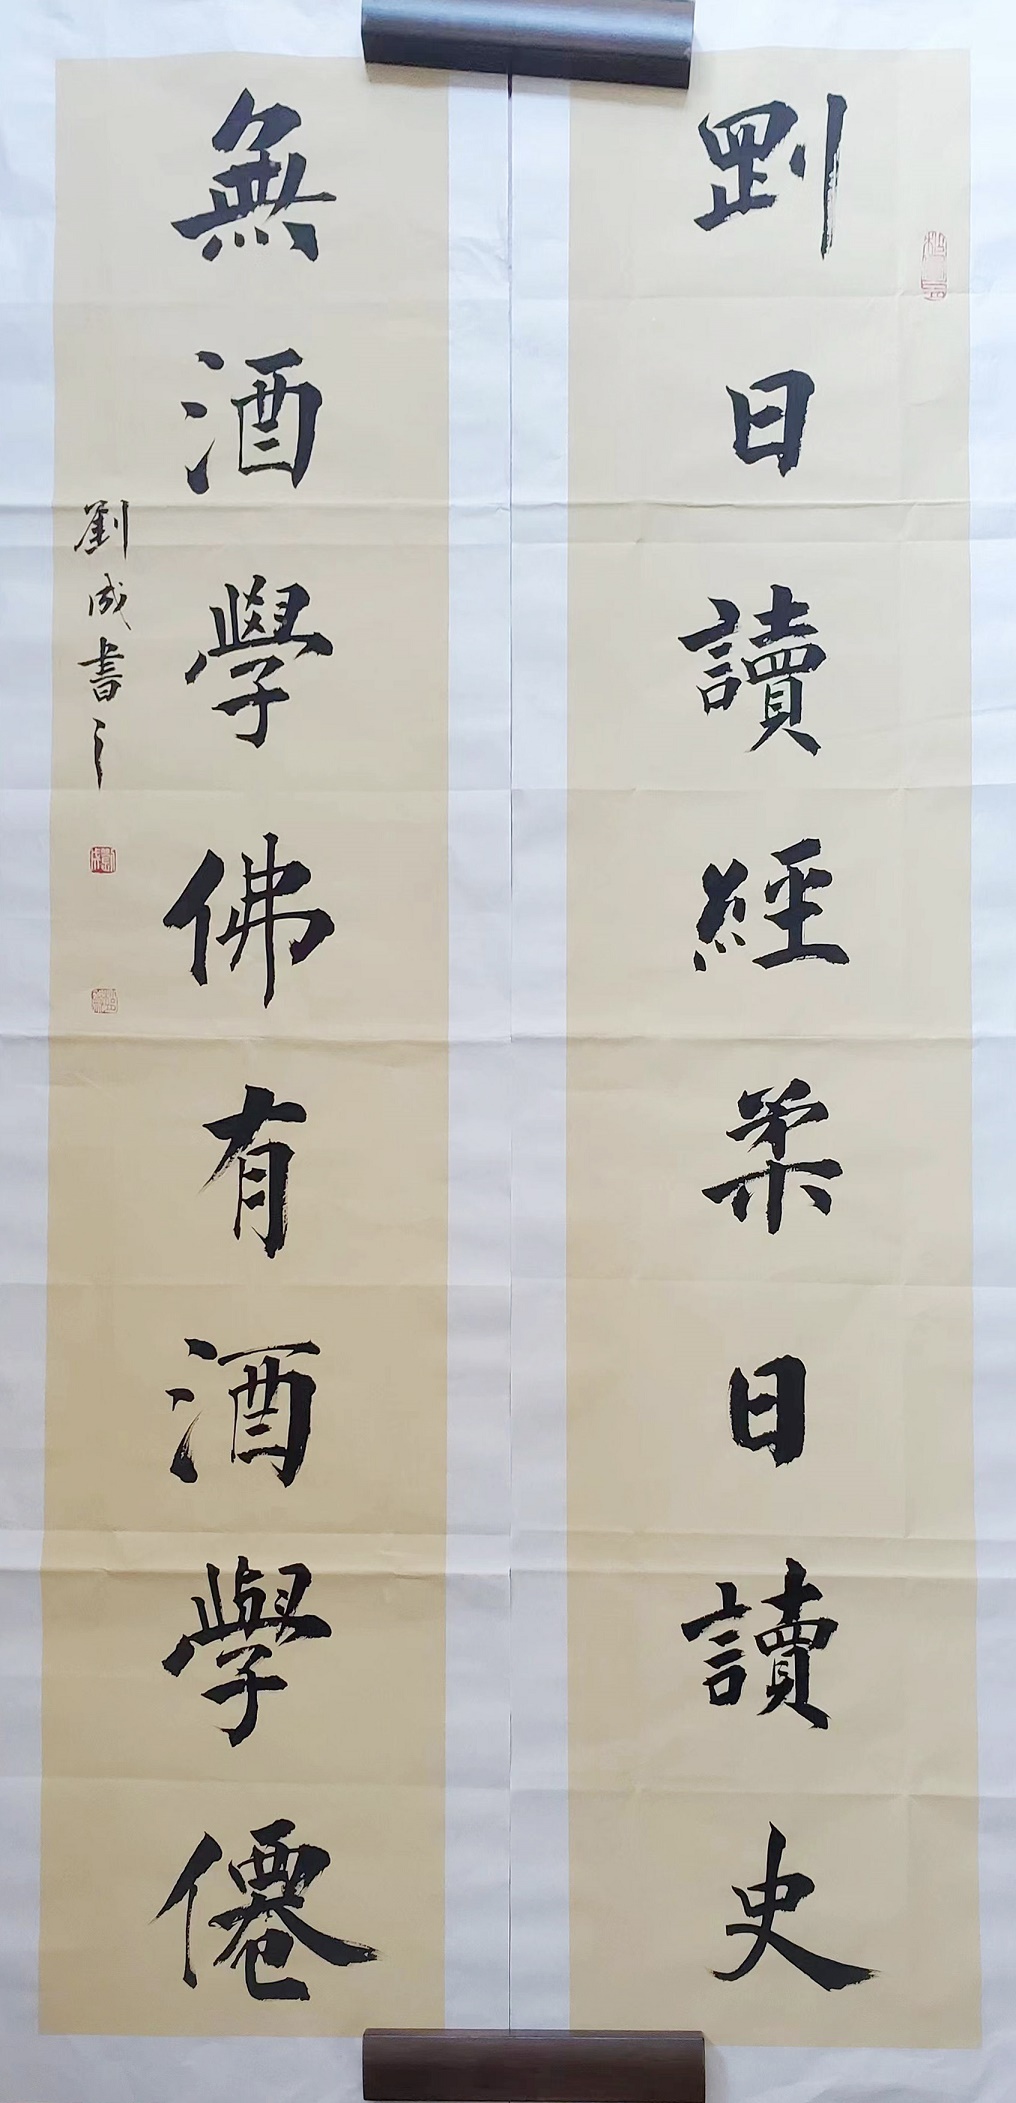 剛日讀經柔日讀史
無酒學佛有酒學僊
劉成書之